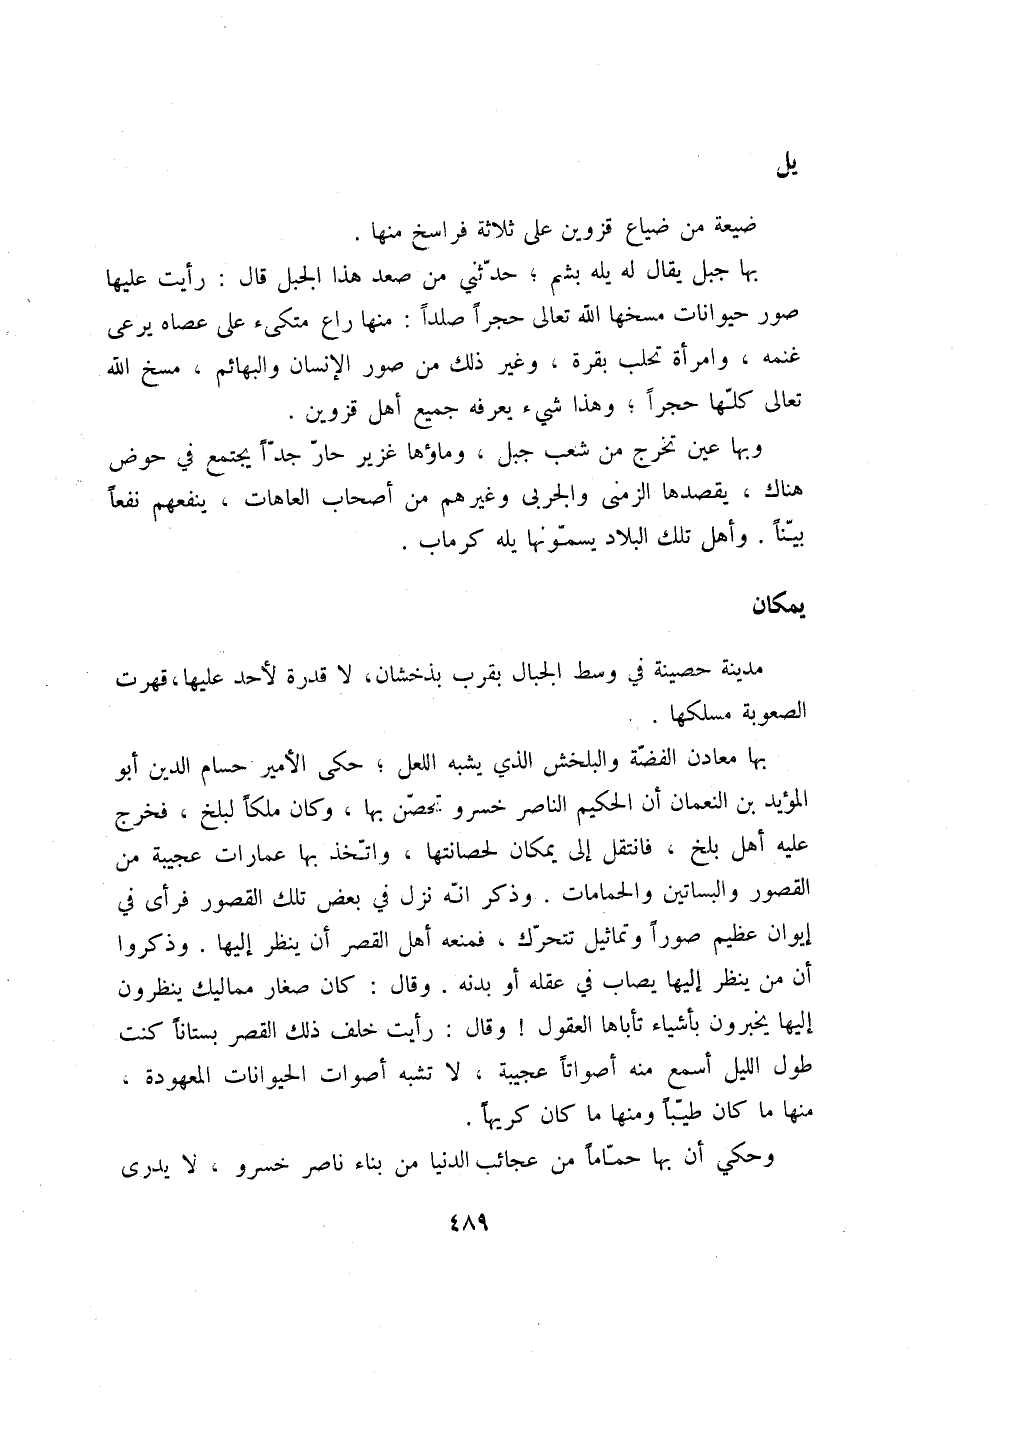 يل
ضيعة من ضياع قزوين على ثلاثة فراسخ منها .
بها جبل يقال له يله بشم ؛ حدّثني من صعد هذا الجبل قال : رأيت عليها
صور حيوانات مسخها الله تعالى حجراً صلداً : منها راع متكىء على عصاه يرعى
غنمه ، وامرأة تحلب بقرة ، وغير ذلك من صور الإنسان والبهائم ، مسخ الله
تعالى كلّها حجراً ؛ وهذا شيء يعرفه جميع أهل قزوين .
وبها عين تخرج من شعب جبل ، وماؤها غزير حارّ جدّاً يجتمع في حوض
هناك ، يقصدها الزمنى والجربى وغيرهم من أصحاب العاهات ، ينفعهم نفعاً
بيّناً . وأهل تلك البلاد يسمّونها يله كرماب .
يمكان
مدينة حصينة في وسط الجبال بقرب بذخشان، لا قدرة لأحد عليها، قهرت
الصعوبة مسلكها .
بها معادن الفضّة والبلخش الذي يشبه اللعل ؛ حكى الأمير حسام الدين أبو
المؤيد بن النعمان أن الحكيم الناصر خسرو تحصّن بها ، وكان ملكاً لبلخ ، فخرج
عليه أهل بلخ ، فانتقل إلى يمكان لحصانتها ، واتّخذ بها عمارات عجيبة من
القصور والبساتين والحمامات . وذكر انّه نزل في بعض تلك القصور فرأى في
إيوان عظيم صوراً وتماثيل تتحرّك ، فمنعه أهل القصر أن ينظر إليها . وذكروا
أن من ينظر إليها يصاب في عقله أو بدنه . وقال : كان صغار مماليك ينظرون
إليها يخبرون بأشياء تأباها العقول ! وقال : رأيت خلف ذلك القصر بستاناً كنت
طول الليل أسمع منه أصواتاً عجيبة ، لا تشبه أصوات الحيوانات المعهودة ،
منها ما كان طيّباً ومنها ما كان كريهاً .
وحكي أن بها حمّاماً من عجائب الدنيا من بناء ناصر خسرو ، لا يدرى
٤٨٩